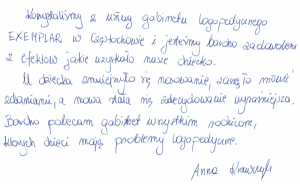 Korzystaliśmy z usług gabinetu logopedycznego
EXEMPLAR w Częstochowie i jesteśmy bardzo zadowoleni
z efektów jakie uzyskało nasze dziecko.
U dziecka zmniejszyło się nosowanie, zaczęło mówić
zdaniami, a mowa stała się zdecydowanie wyraźniejsza.
Bardzo polecam gabinet wszystkim rodzicom,
których dzieci mają problemy logopedyczne.
Anna